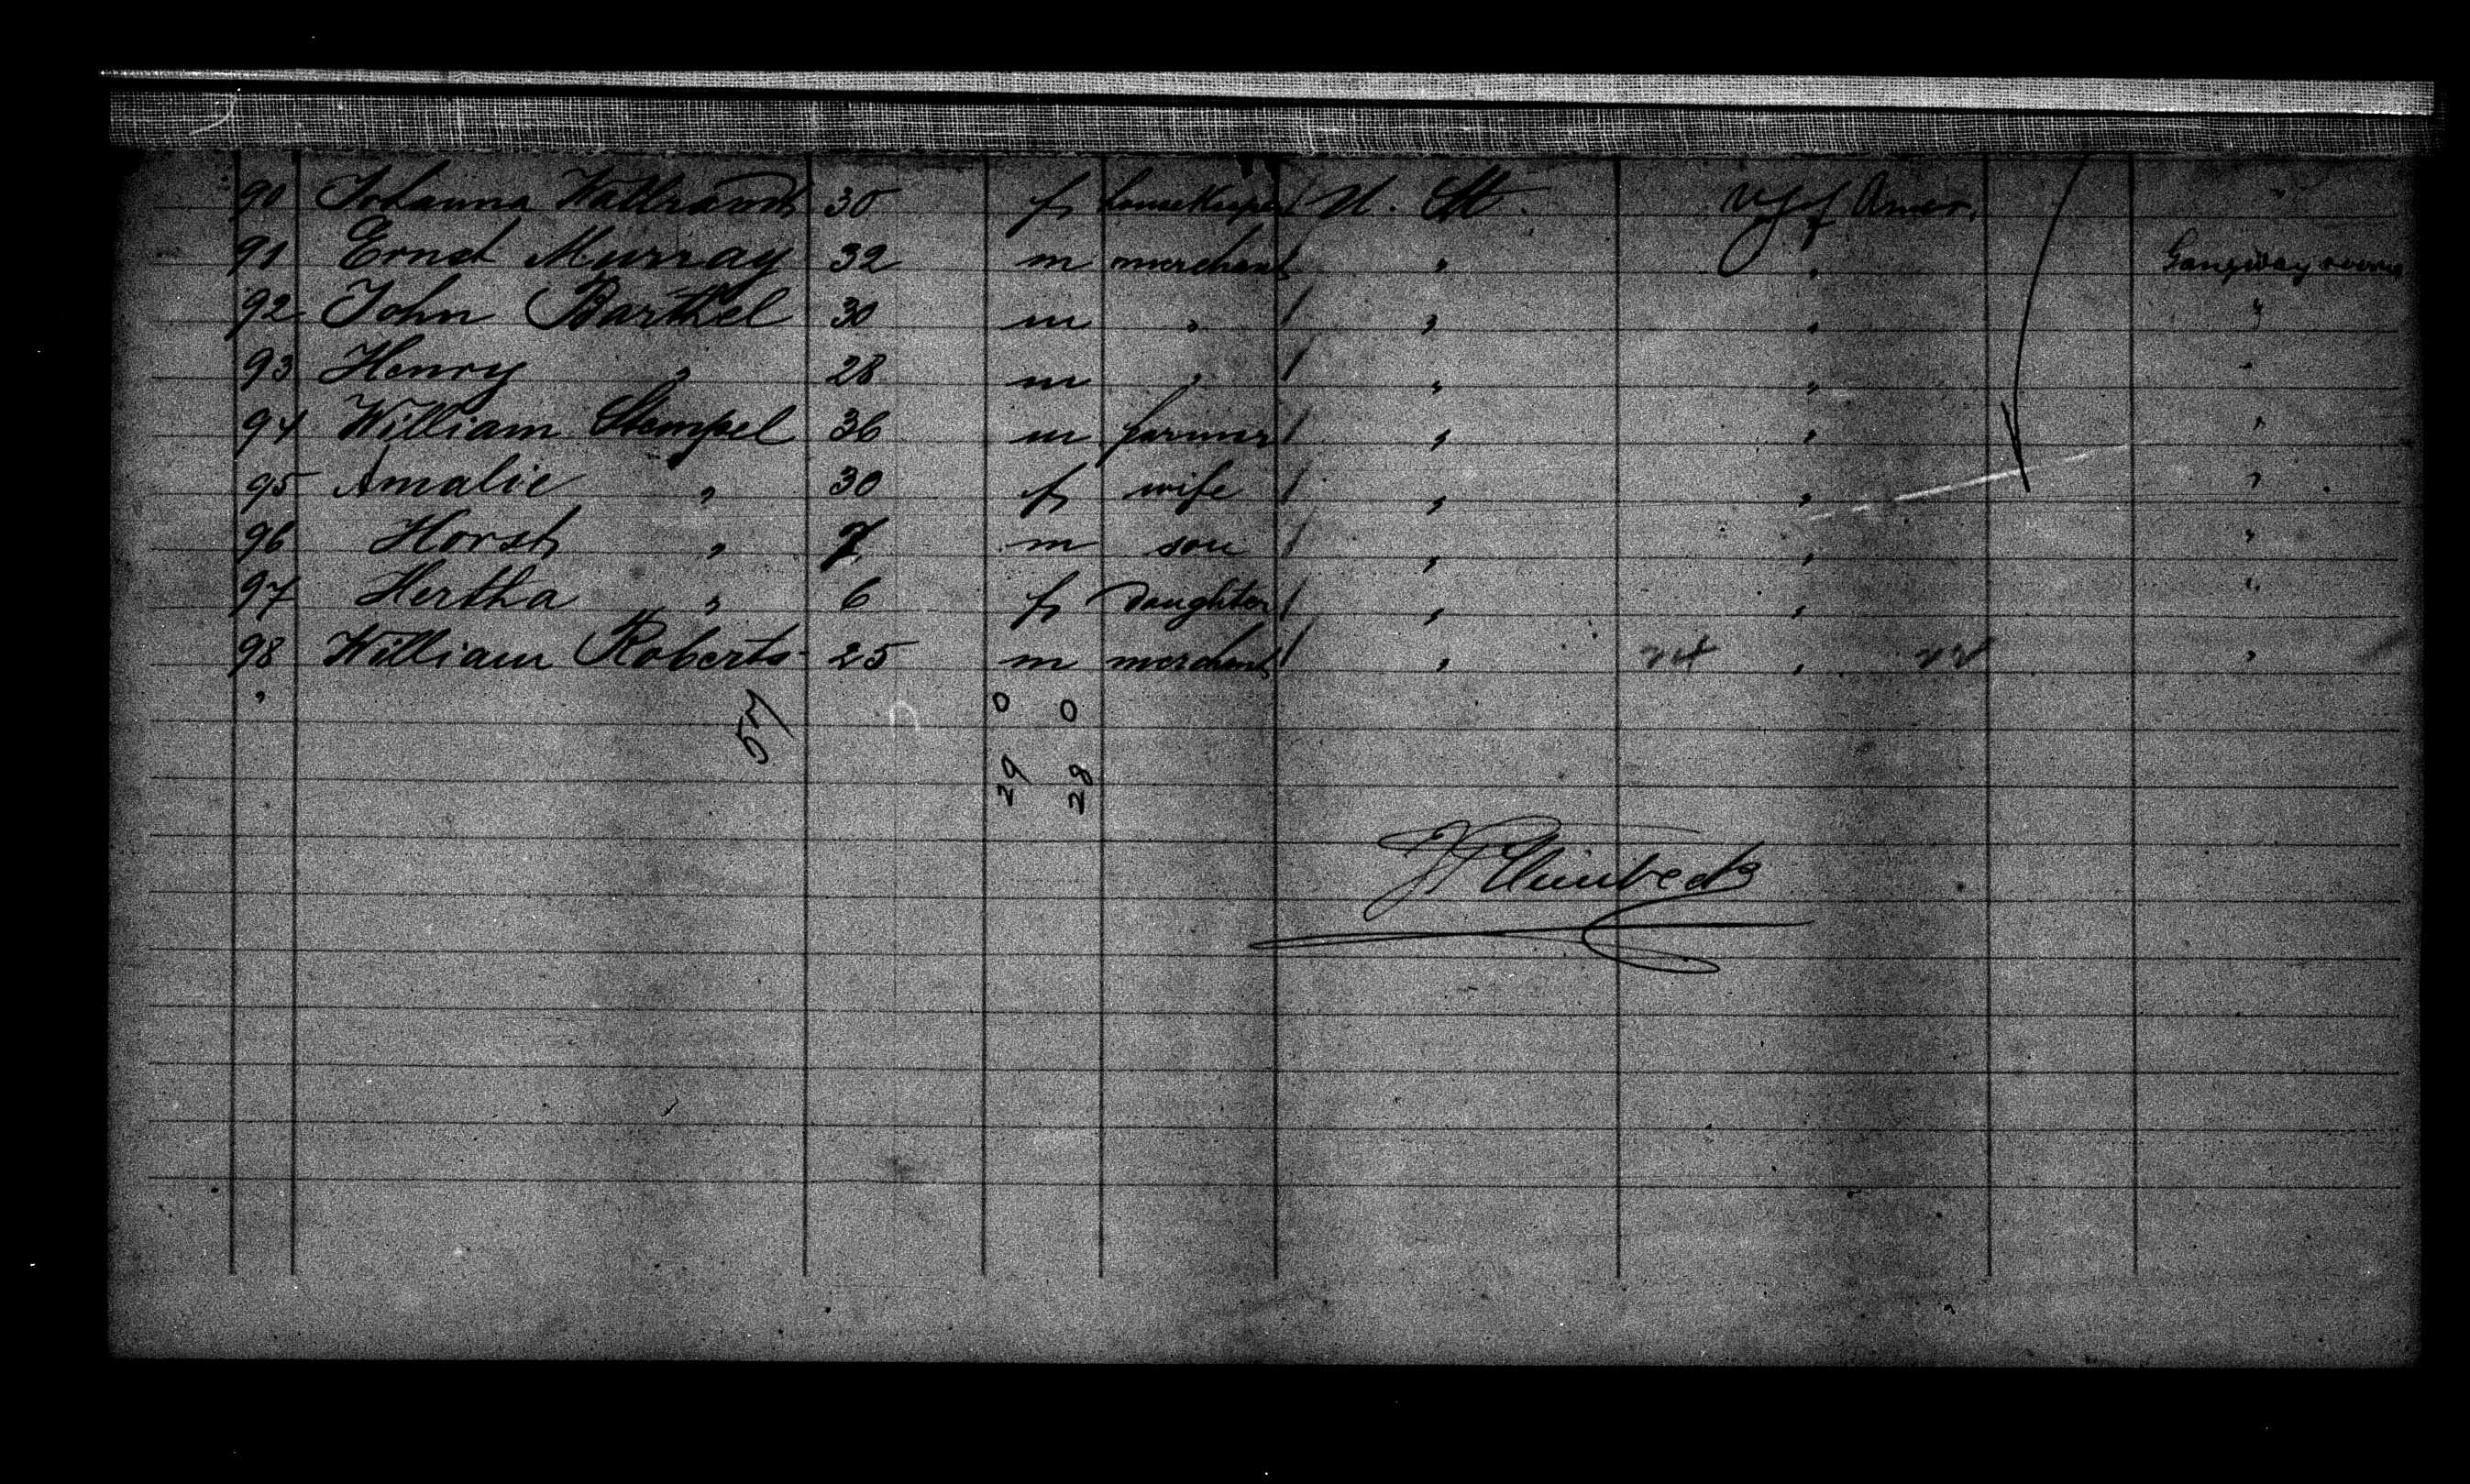 90 Johanna 30 f housekeeper / U. St. U. S. of Amer. "
91 Ernst Murray 32 m merchant " " Gangway rooms
92 John Barthel 30 m " / " " "
93 Henry " 28 m " / " " "
94 William Stempel 36 m farmer / " " "
95 Amalie " 30 f wife / " " "
96 Horst " 7 m son / " " "
97 Hertha " 6 f daughter / " " "
98 William Roberts 25 m merchant / " " "
"
57
0 0
29 28